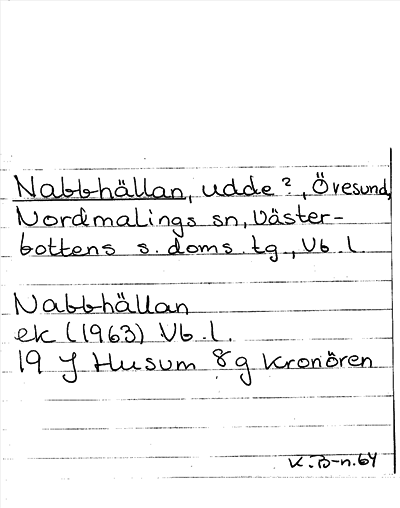 Nabbhällan, udde?, Öresund,
Nordmalings sn, Väster-
bottens s. doms. tg., Vb. l.
Nabbhällan
ek (1963) Vb. l.
19 J Husum 8g Kronören
K.B-n.64